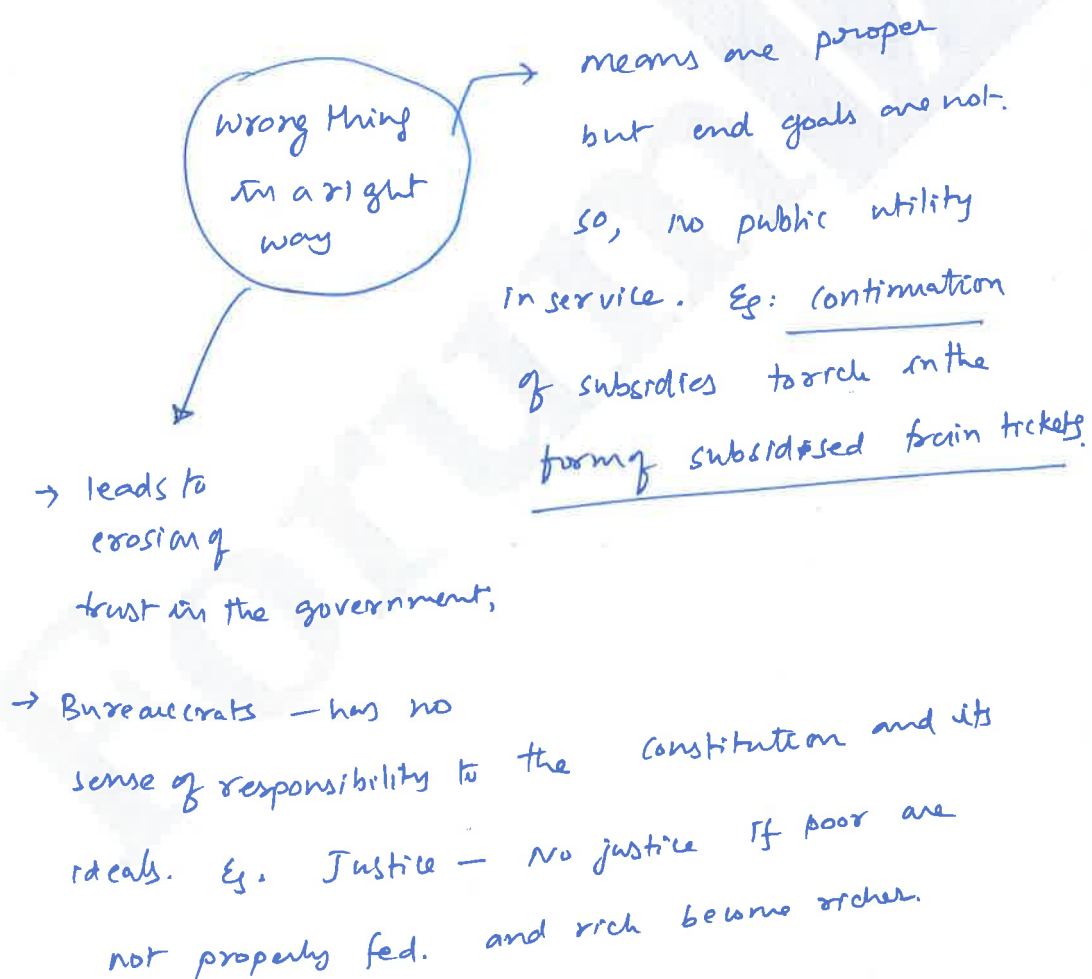 wrong thing
in a right
way
→ means are proper
but end goals are not.
so, no public utility
in service. Eg: continuation
of subsidies to rich in the
form of subsidised train tickets.
→ leads to
erosion of
trust in the government,
→ Bureaucrats – has no
sense of responsibility to the constitution and its
ideals. Eg. Justice – No justice if poor are
not properly fed. and rich become richer.